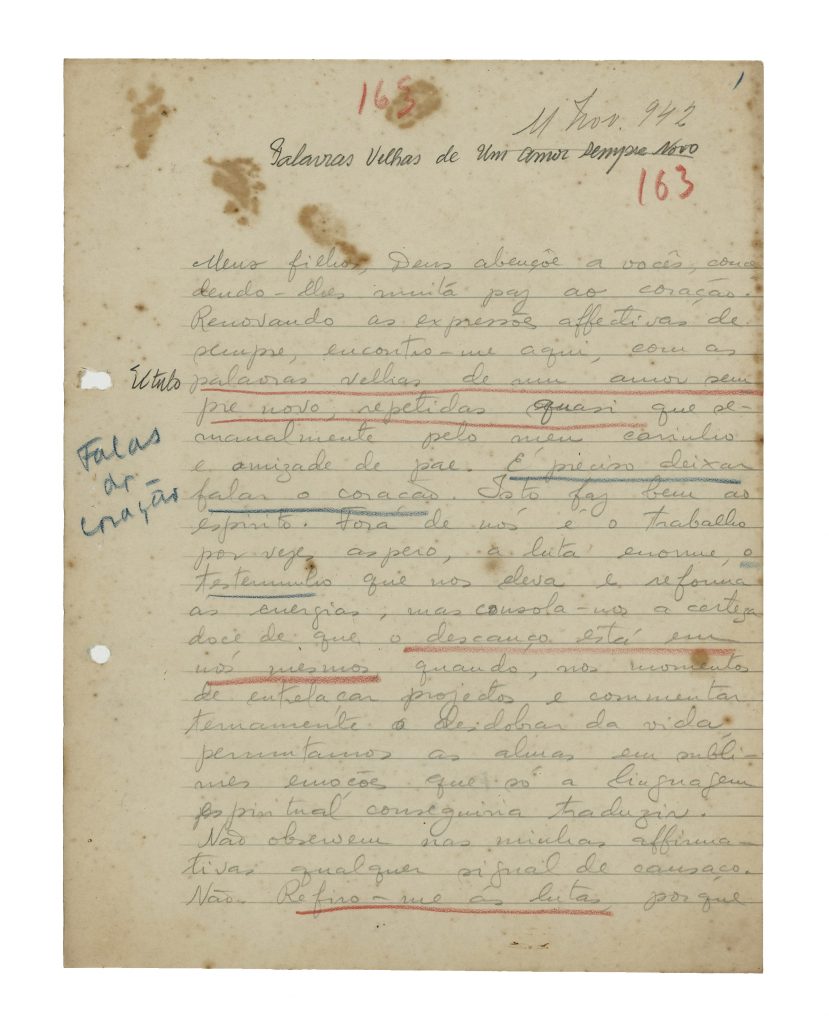 163
1
11 Nov. 942
Palavras Velhas de Um Amor Sempre Novo
163
Meus filhos, Deus abençôe a vocês, conce
dendo-lhes muita paz ao coração.
Renovando as expressões affectivas de
sempre, encontro-me aqui, com as
Título
palavras velhas de um amor sem
pre novo, repetidas quasi que se-
manalmente pelo meu carinho
e amizade de pae. É preciso deixar
Falas
do
coração
falar o coração. Isto faz bem ao
espírito. Fóra de nós é o trabalho
por vezes aspero, a luta enorme, o
testemunho que nos eleva e reforma
as energias, mas consola-nos a certeza
doce de que o descanço está em
nós mesmos quando, nos momentos
de entrelaçar projectos e commentar
ternamente o desdobrar da vida,
permutamos as almas em subli-
mes emoções que só a linguagem
espiritual conseguiria traduzir.
Não observem nas minhas affirma-
tivas qualquer signal de cansaço.
Não. Refiro-me ás lutas, porque